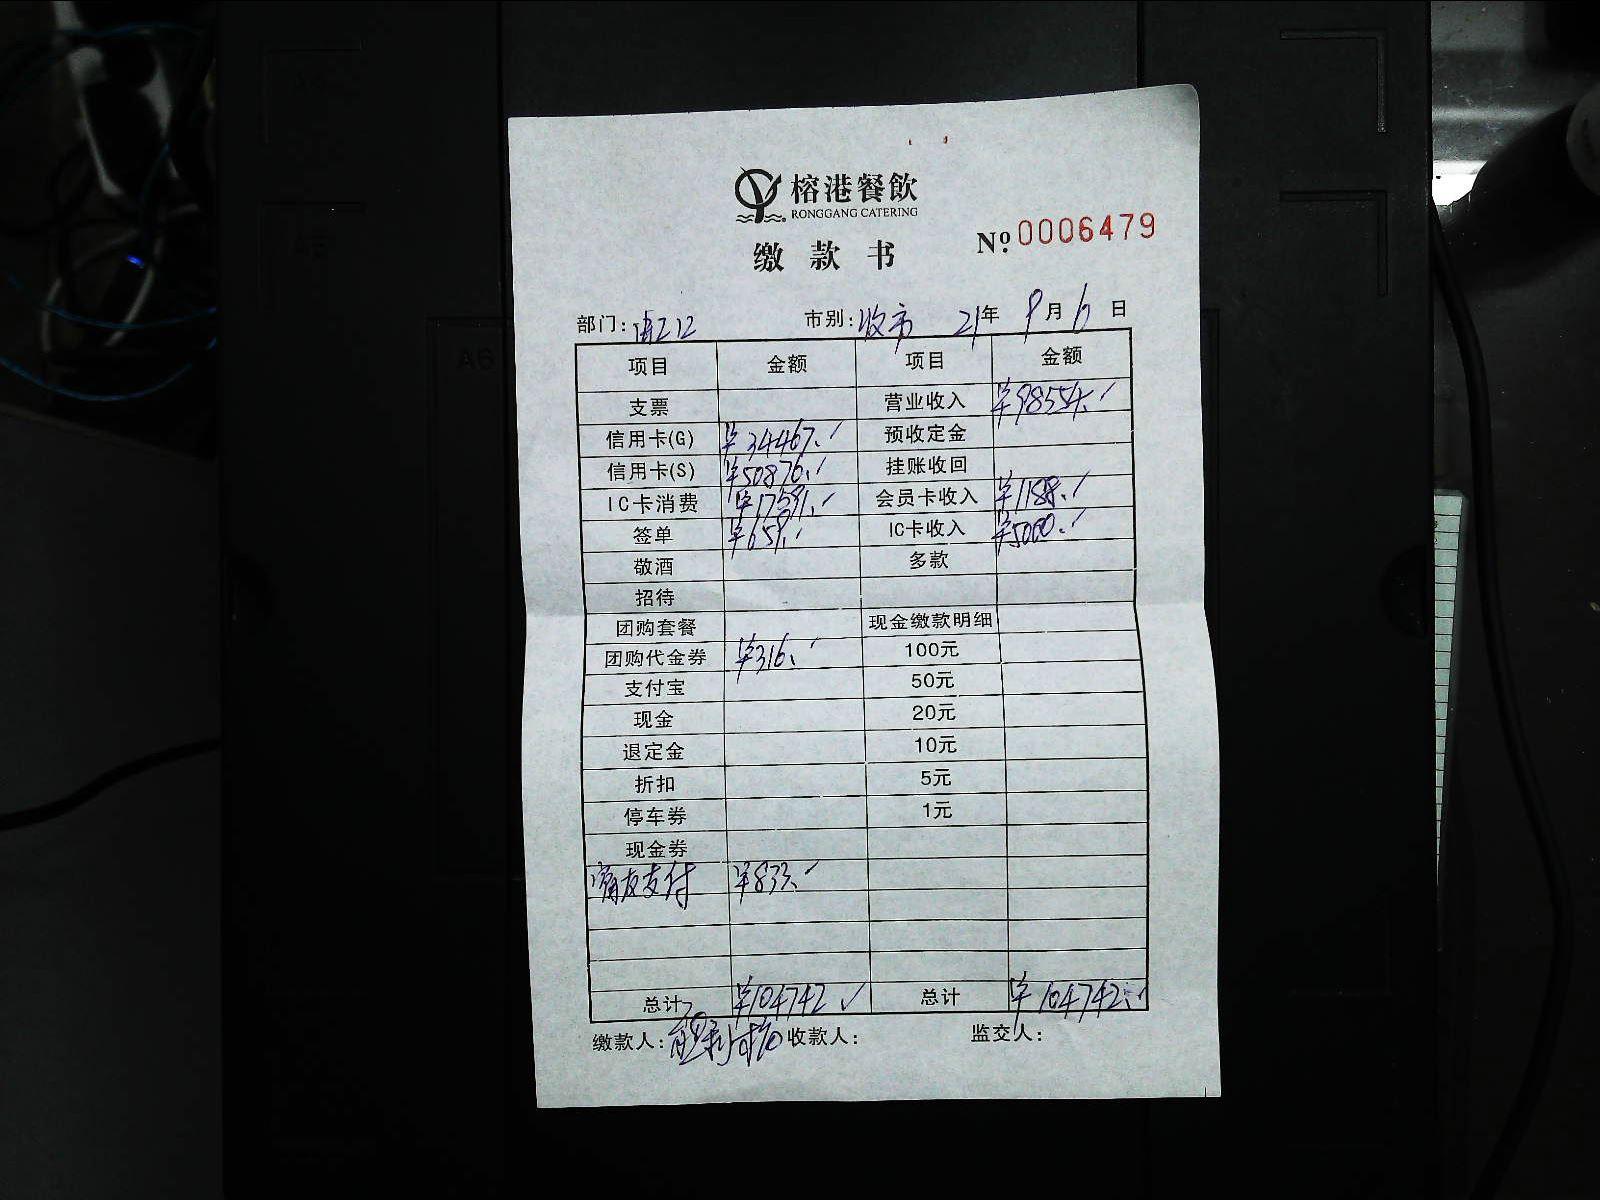 榕港餐飲
RONGGANG CATERING
缴款书 Nº 0006479
部门: 市别: 收市 21年 9月 6日
项目 金额 项目 金额
支票 营业收入 ¥98554.
信用卡(G) ¥34467. 预收定金
信用卡(S) ¥50876. 挂账收回
IC卡消费 ¥17591. 会员卡收入 ¥1188.
签单 ¥659. IC卡收入 ¥5000.
敬酒 多款
招待
团购套餐 现金缴款明细
团购代金券 ¥316. 100元
支付宝 50元
现金 20元
退定金 10元
折扣 5元
停车券 1元
现金券
支付 ¥833.
总计 ¥104742 总计 ¥104742.
缴款人: 收款人: 监交人:
A6